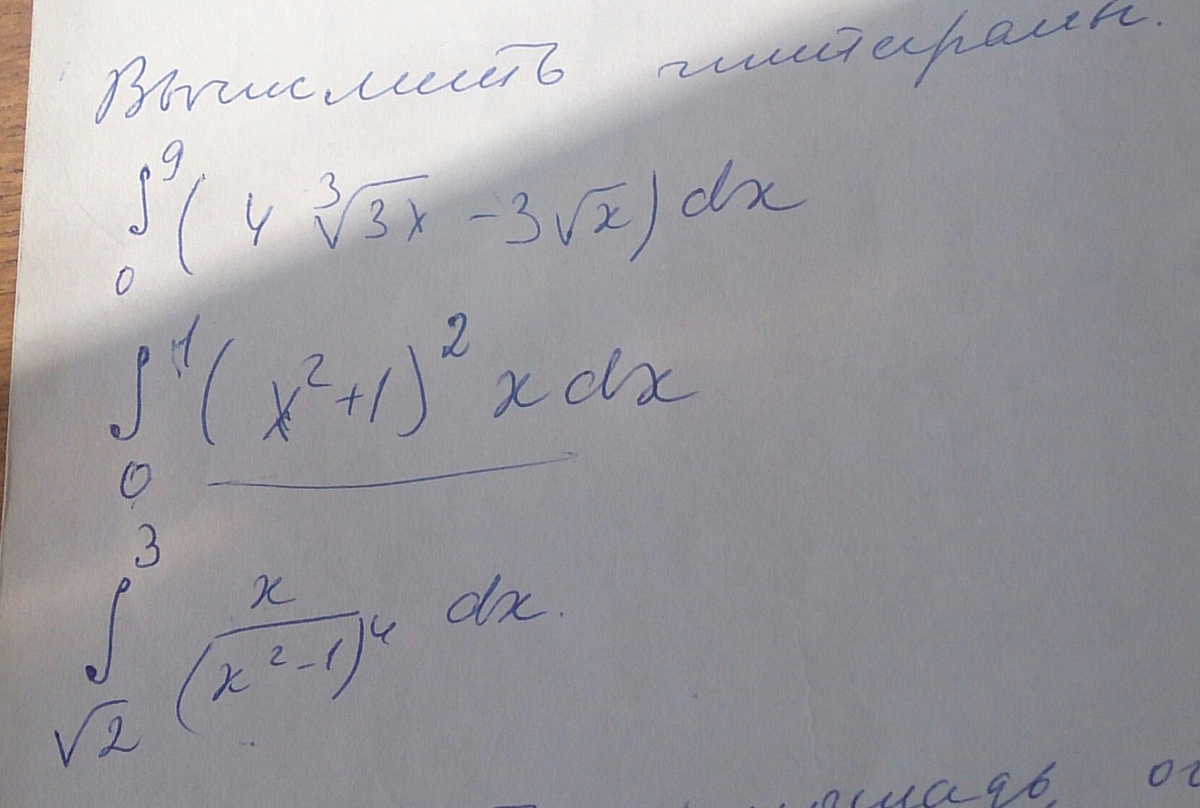 Вычислить интегралы.
∫₀⁹ ( 4 ∛3x - 3√x ) dx
∫₀¹ ( x² + 1 )² x dx
∫_√2^3 x/(x² - 1)⁴ dx.